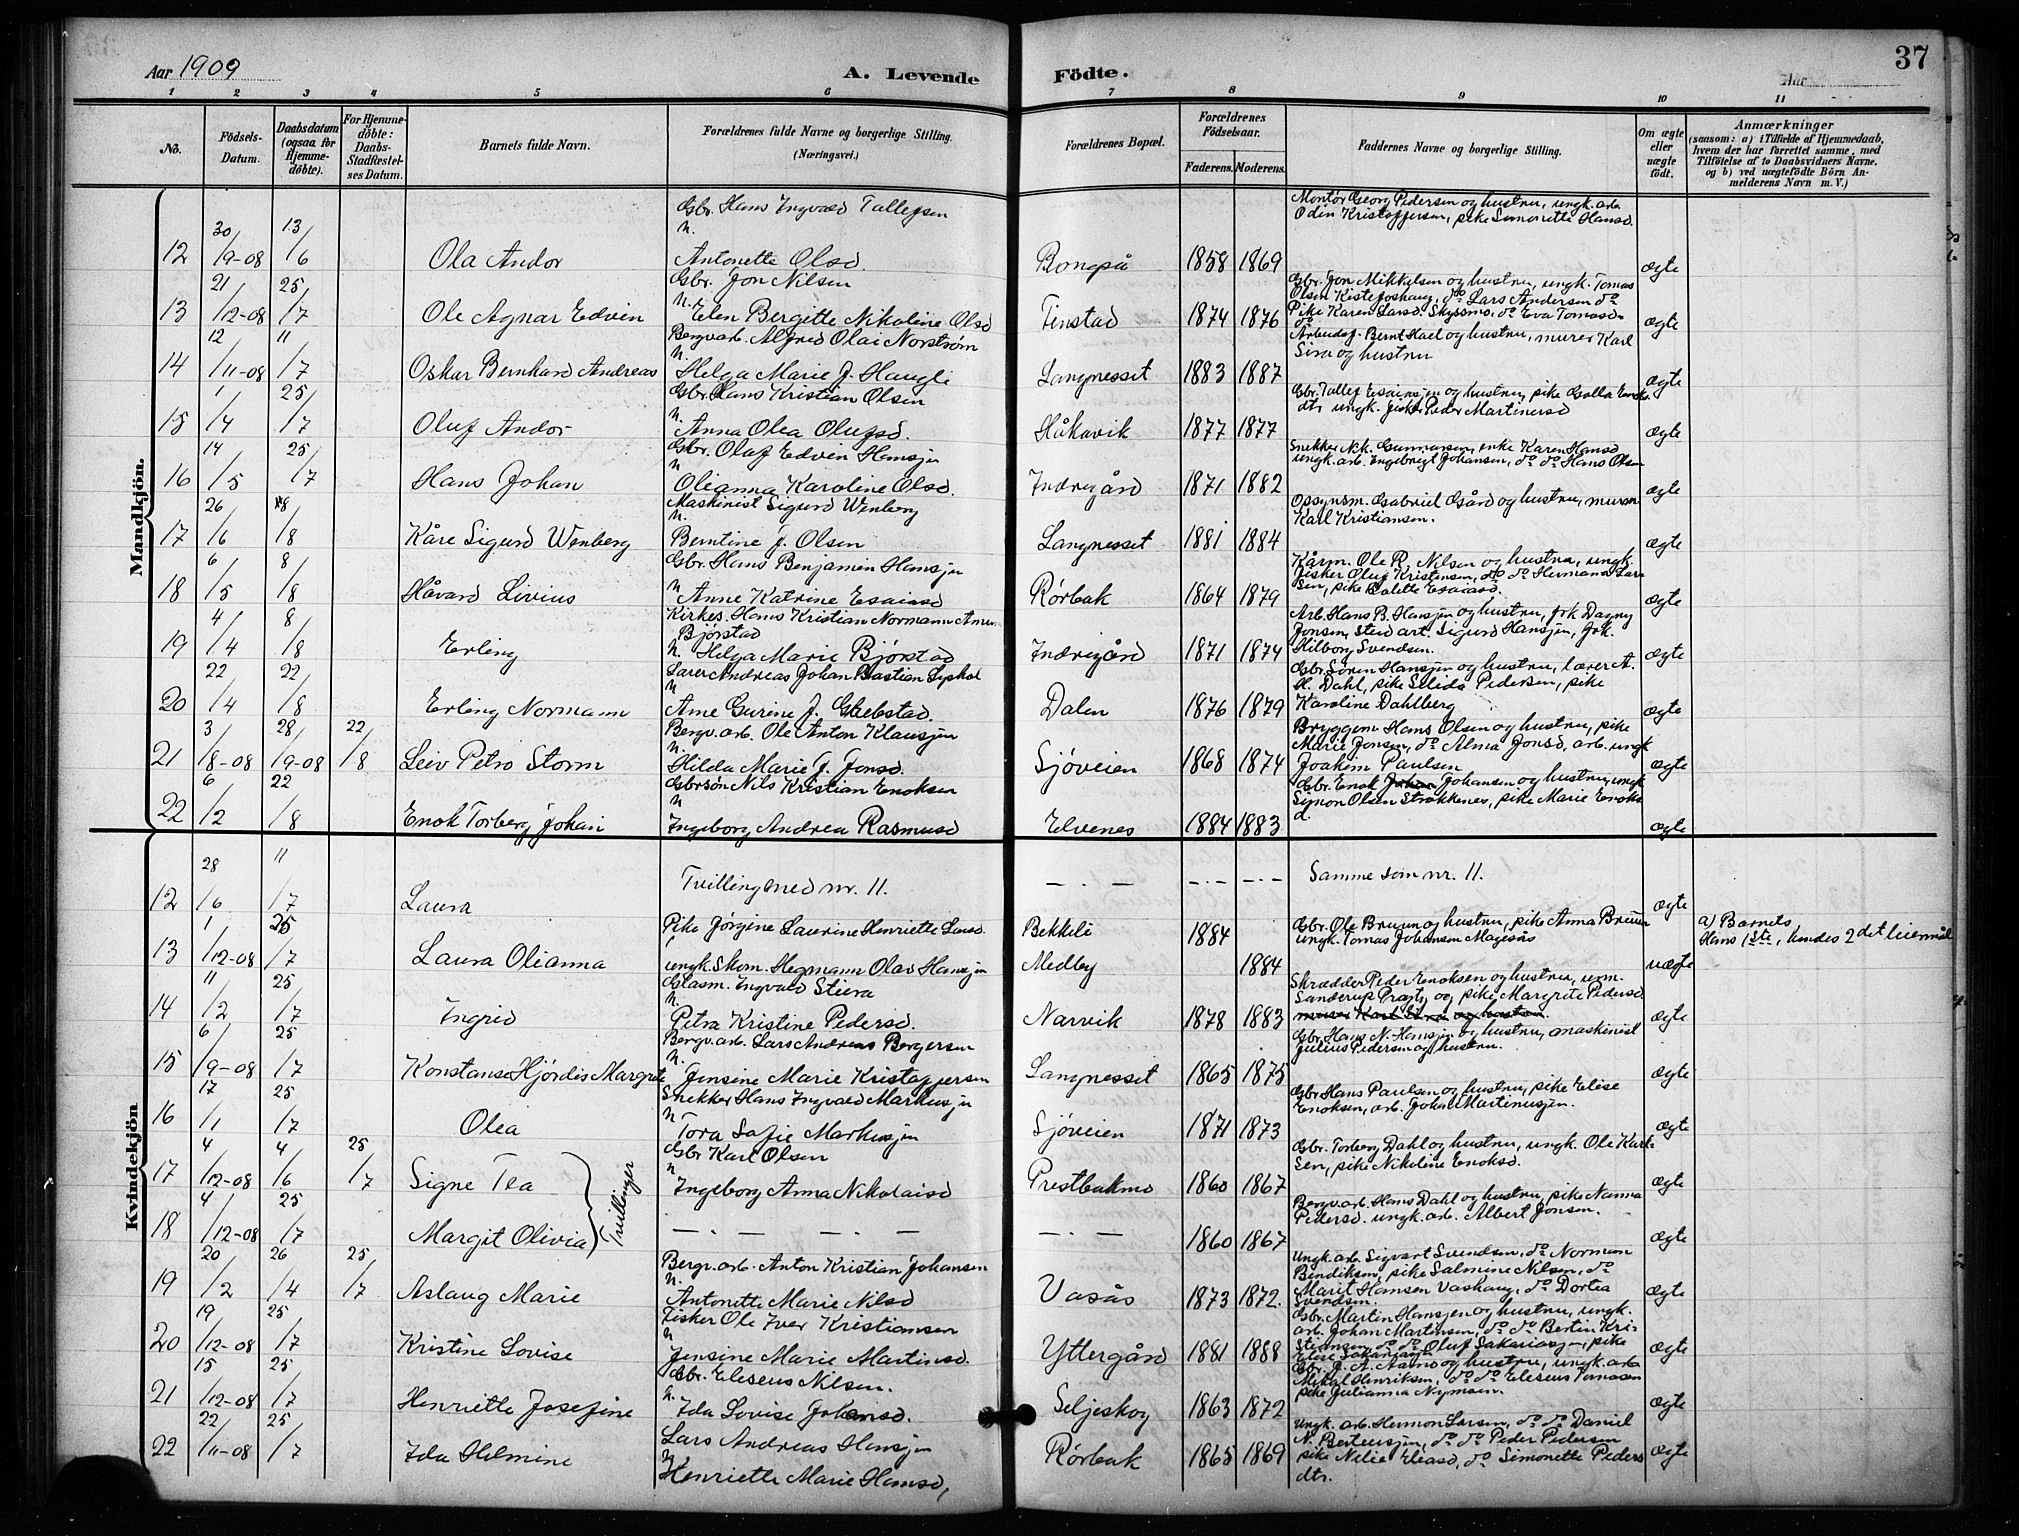 Aar 1909
A. Levende
Födte.
37
Aar
1 2 3 4 5 6 7 8 9 10 11
No.
Födsels-Datum.
Daabsdatum (ogsaa for Hjemme-döbte).
For Hjemme-döbte: Daabs-Stadfestel-ses Datum.
Barnets fulde Navn.
Forældrenes fulde Navne og borgerlige Stilling. (Næringsvei.)
Forældrenes Bopæl.
Forældrenes Födselsaar.
Faderens. Moderens.
Faddernes Navne og borgerlige Stilling.
Om ægte eller uægte födt.
Anmærkninger
(saasom: a) i Tilfælde af Hjemmedaab,
hvem der har forrettet samme, med
Tilföielse af to Daabsvidners Navne.
og b) ved uægtefödte Börn An-
melderens Navn m. V.)
Mandkjön.
Gbr. Hans Ingvald Tallefsen
Montør Georg Pedersen og hustru, ungk. arb.
Odin Kristoffersen, pike Simonette Hansd.
12 30/9-08 13/6 Ola Andor
Antonette Olsd. Bongså 1858 1869 ægte
Gbr. Jon Nilsen
Gbr. Jon Mikkelsen og hustru, ungk. Tomas
Olsen Kistefoshaug, do Lars Andersen do
13 21/12-08 25/7 Ole Agnar Edvin
Elen Bergette Nikoline Olsd Tinstad 1874 1876 ægte
Pike Karen Larsd. Skyssmo, do Eva Tomasd.
Bergvarb. Alfred Olai Norstrøm
Arbeidsf. Bernt Hael og hustru, murer Karl
Sira og hustru
14 12/11-08 11/7 Oskar Bernhard Andreas
Helga Marie J. Haugli Langnesset 1883 1887 ægte
Gbr. Hans Kristian Olsen
15 1/4 25/7 Oluf Andor
Anna Olea Olufsd. Håkavik 1877 1877 ægte
dtr ungk. fisker Peder Martinussd
Gbr. Oluf Edvin Hansjen
Snekker Nik. Gunnarsen, enke Karen Hansd
ungk. arb. Ingebrigt Johansen, do do Hans Olsen
16 14/5 25/7 Hans Johan
Olianna Karoline Olsd. Indregård 1871 1882 ægte
Maskinist Sigurd Wenberg
Opsynsm. Gabriel Gsård og hustru, murer
Karl Kristiansen.
17 26/6 8/8 Kåre Sigurd Wenberg
Berntine J. Olsen Langnesset 1881 1884 ægte
Gbr. Hans Benjamin Hansjen
Kårm. Ole R. Nilsen og hustru, ungk.
fisker Oluf Kristensen, do do Hermans Lar-
sen, pike Balette Esaiasd.
18 6/5 8/8 Håvard Livius
Anne Katrine Esaisd Rørbak 1864 1879 ægte
Kirkes. Hans Kristian Normann
Bjørstad
Arb. Hans B. Hansjen og hustru, frk Dagny
Jonsen, Stud art. Sigurd Hansjen, frk.
Hilborg Svendsen.
19 4/4 8/8 Erling
Helga Marie Bjørstad Indregård 1871 1874 ægte
Lærer Andreas Johan Bastian
Gbr. Søren Hansjen og hustru, lærer A.
H. Dahl, pike Selida Pedersen, pike
Karoline Dahlberg
20 22/4 22/8 Erling Normann
Ane Gurine J. Glebstad. Dalen 1876 1879 ægte
Bergv. arb. Ole Anton Klausjen
Bryggem Hans Olsen og hustru, pike
Marie Jonsen, do Alma Jonsd, arb. ungk
Joakim Paulsen
21 3/8-08 28/9-08 22/8 Leiv Petro Storm
Hilda Marie J. Jonsd. Sjøveien 1868 1874 ægte
Gbrsøn Nils Kristian Enoksen
Gbr. Enok Johansen og hustru, ungk
Simon Olsen Strokkenes, pike Marie Enoks
d.
22 6/2 22/8 Enok Torberg Johan
Ingeborg Andrea Rasmusd Elvenes 1884 1883 ægte
Kvindekjön
12 28/6 11/7 Laura
Tvilling med nr. 11. Samme som nr. 11. ægte
Pike Jørgine Laurine Henriette Larsd. Bekkeli 1884
Gbr. Ole Bruun og hustru, pike Anna Bruun
ungk. Tomas Johansen Magesås
a) Barnets
Hans 1ste, hendes 2det leiermål
13 1/12-08 25/7 Laura Olianna
ungk. Skom. Hegmann Olav Hansjen Medby 1884 uægte
Glasm. Ingvald Stiera
Skrædder Peder Enoksen og hustru, urm.
Sanderup Præsty og pike Margrete Pedersd.
murer Karl Sira og hustru.
14 11/2 25/7 Ingrid
Petra Kristine Pedersd. Narvik 1878 1883 ægte
Bergv. arb. Lars Andreas Bergersen
Gbr. Hans N. Hansjen og hustru, maskinist
Julius Pedersen og hustru.
15 6/9-08 25/7 Konstanse Hjördis Margrete
Jensine Marie Kristoffersen Langnesset 1865 1875 ægte
Snekker Hans Ingvald Markusjen
Gbr Hans Paulsen og hustru, pike Elise
Enoksen, arb. Johan Martinusjen.
16 17/1 25/7 Olea
Tora Sofie Markusjen Sjøveien 1871 1873 ægte
Gbr Karl Olsen
Gbr. Torberg Dahl og hustru, ungk. Ole Karl-
sen, pike Nikoline Enoksd.
17 4/12-08 4/6 25/7 Signe Tea
Tvillinger
Ingeborg Anna Nikolaisd Prestbakmo 1860 1867 ægte
Bergv. arb. Hans Dahl og hustru, pike Nanna
Pedersd. ungk. arb. Albert Jonsen.
18 4/12-08 25/7 Margit Olivia
1860 1867 ægte
Bergv. arb. Anton Kristian Johansen
Ungk. arb Sigvart Svendsen, do Normun
Bendiksen, pike Salmine Nilsen, do
Marit Hansen Vashaug, do Dortea
Svendsen.
19 20/2 26/4 25/7 Aslaug Marie
Antonette Marie Nilsd Vasås 1873 1872. ægte
Fisker Ole Iver Kristiansen
Gbr. Martin Hansjen og hustru, ungk.
arb. Johan Martinsen, do do Bertin Kri-
stiansen, do do Oluf Sakariasjen, pike
Elise Sakariasd
20 19/12-08 25/7 Kristine Lovise
Jensine Marie Martinsd. Yttergård 1881 1888 ægte
Gbr. Eleseus Nilsen.
Gbr. J. A. Aamo og hustru, ungk. arb
Mikal Henriksen, do do Eleseus Tomasen
pike Julianna Nymoen.
21 15/12-08 25/7 Henriette Josefine
Ida Lovise Johansd. Seljeskog 1863 1872 ægte
Lars Andreas Hansjen
Ungk. arb. Hermon Larsen, do do Daniel
N. Berteusjen, do do Peder Pedersen
pike Nilie Eliasd, do Simonette Peders
dtr.
22 22/11-08 25/7 Ida Helmine
Henriette Marie Hansd, Rørbak 1865 1869 ægte